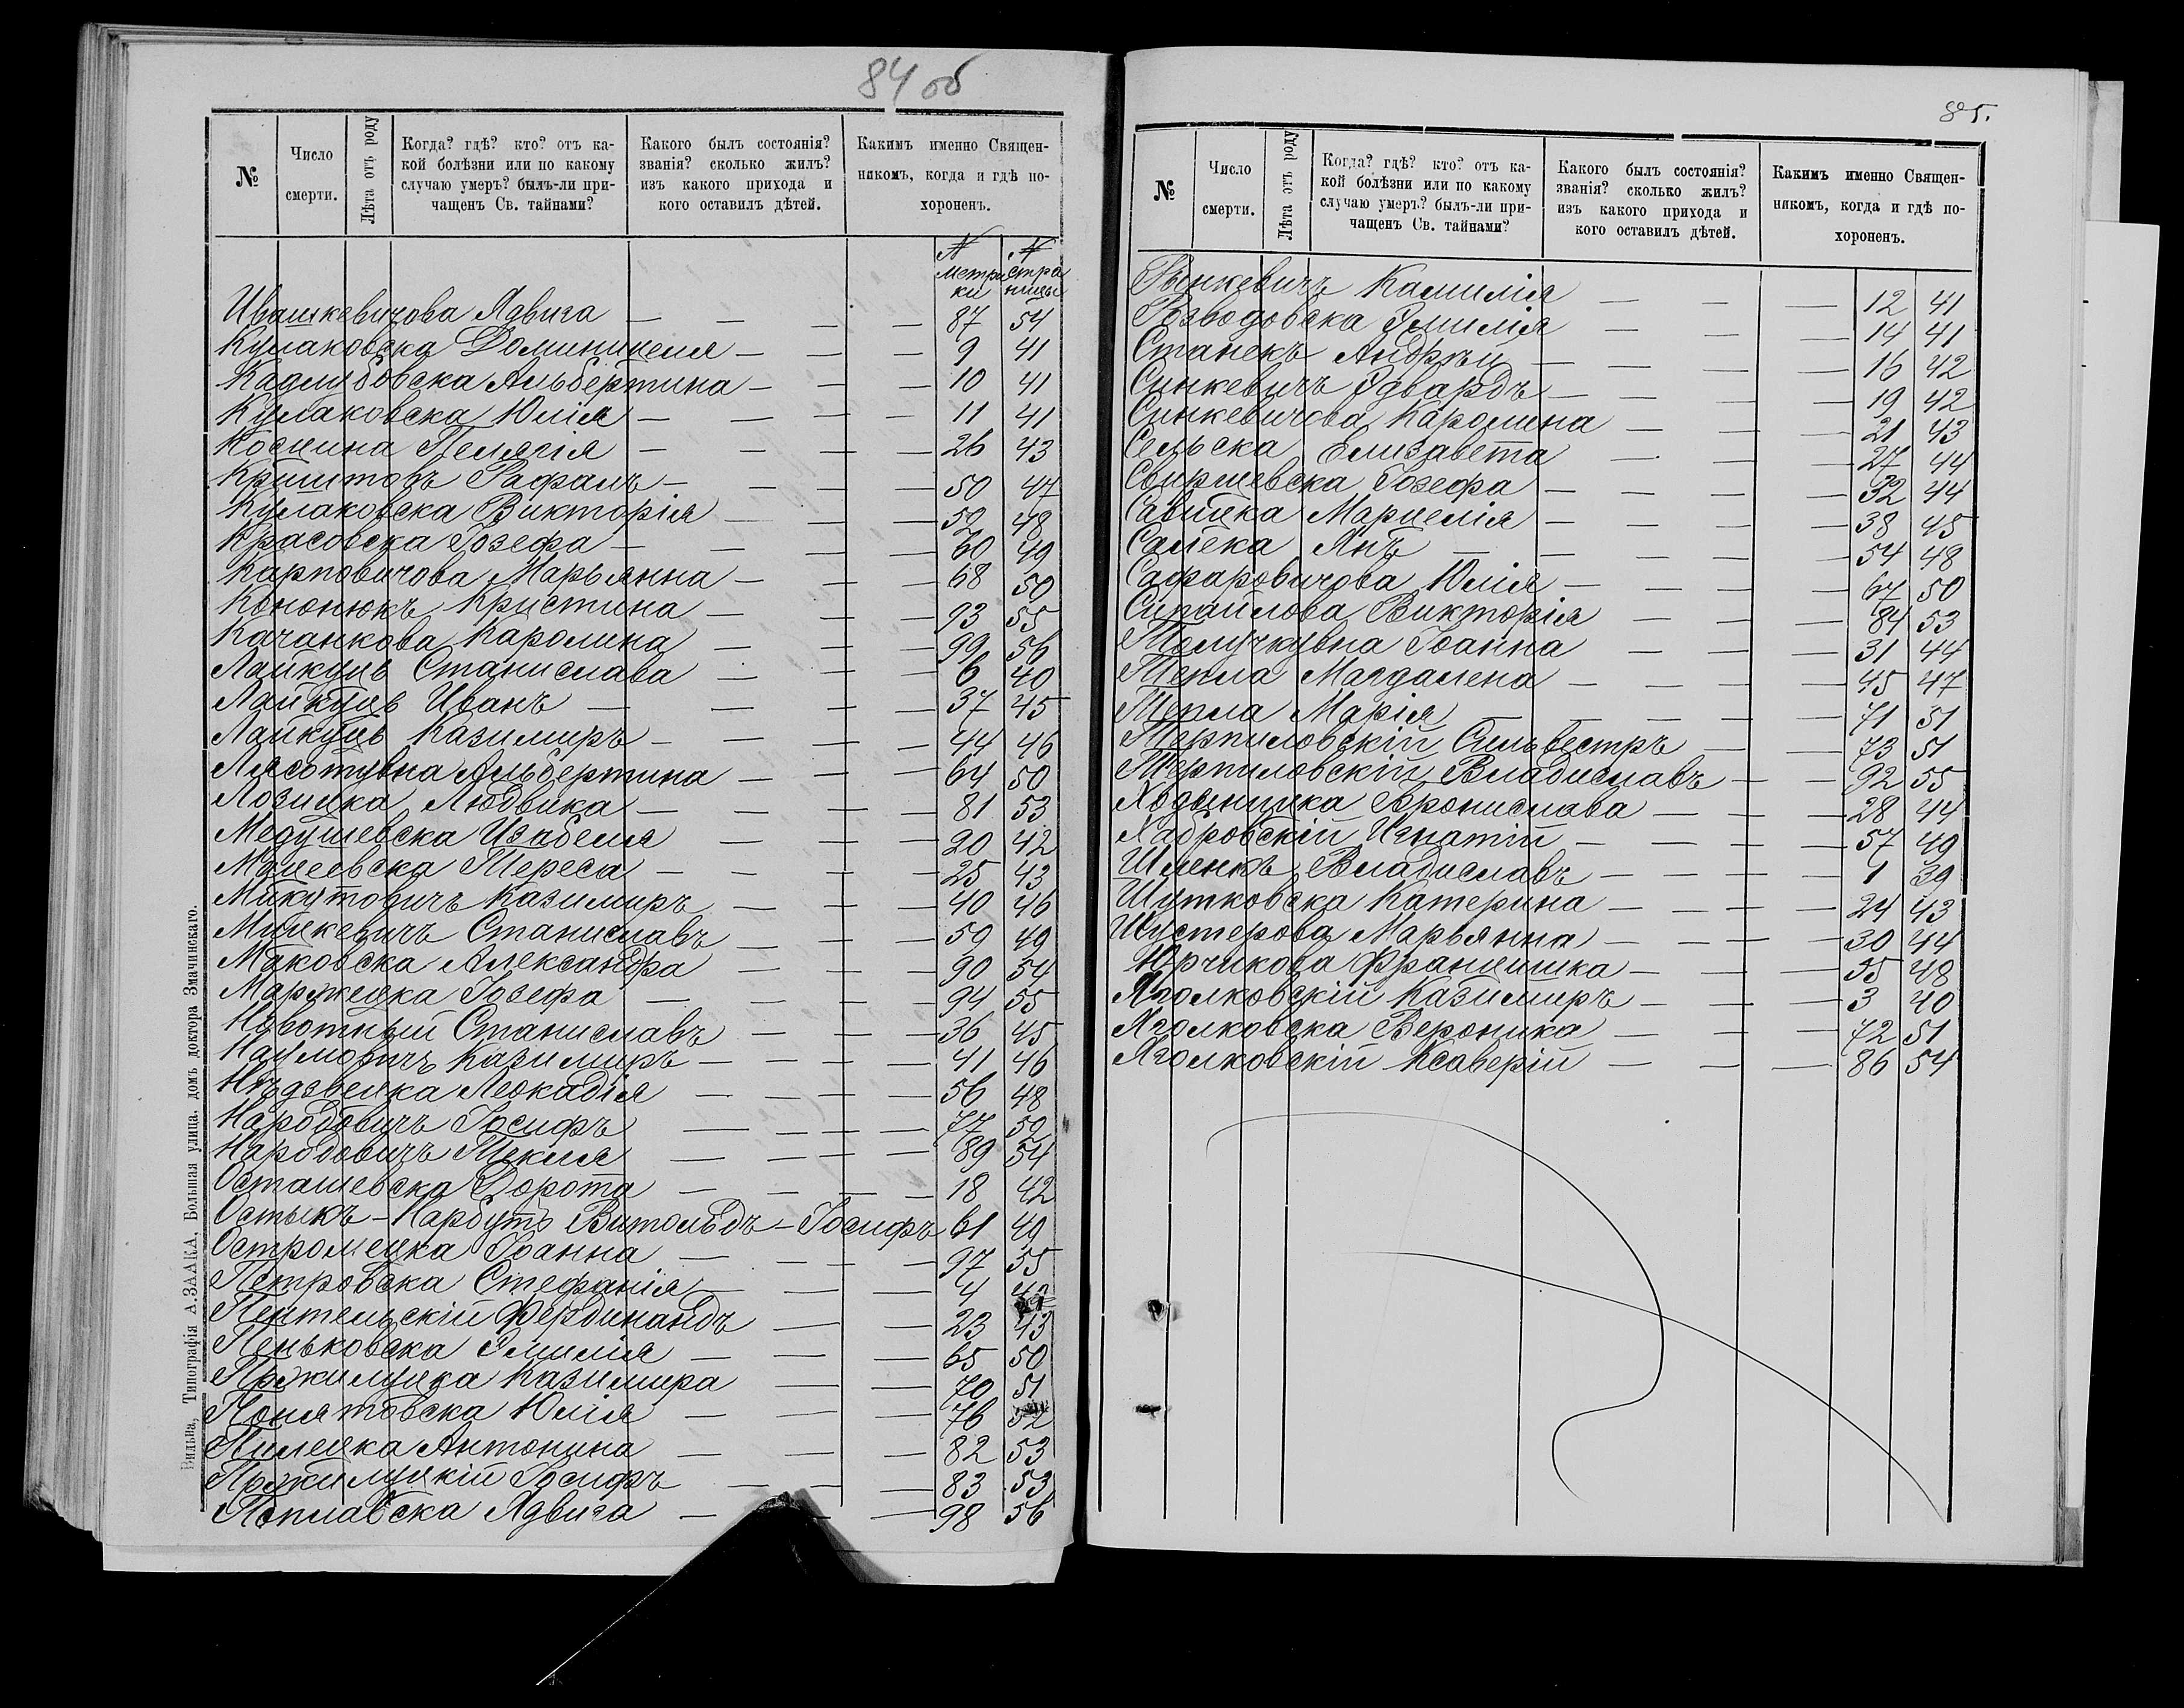 84 об
№
Число смерти.
Лѣта отъ роду
Когда? гдѣ? кто? отъ какой болѣзни или по какому случаю умеръ? былъ-ли причащенъ Св. тайнами?
Какого былъ состоянія? званія? сколько жилъ? изъ какого прихода и кого оставилъ дѣтей.
Какимъ именно Священникомъ, когда и гдѣ похороненъ.
N метрики N страницы
Ивашкевичова Ядвига — 87 54
Кулаковска Доминицеля — 9 41
Кадлубовска Альбертина — 10 41
Кулаковска Юлія — 11 41
Косцина Пелягія — 26 43
Криштовъ Рафалъ — 50 47
Кулаковска Викторія — 52 48
Красовска Іозефа — 60 49
Карповичова Марьянна — 68 50
Кононюкъ Кристина — 93 55
Качанкова Каролина — 99 56
Лайкуць Станислава — 6 40
Лайкуць Иванъ — 37 45
Лайкуць Казимиръ — 44 46
Лясотувна Альбертина — 64 50
Лозицка Людвика — 81 53
Медушевска Изабеля — 20 42
Мацеевска Тереса — 25 43
Микутовичъ Казимиръ — 40 46
Мицкевичъ Станиславъ — 59 49
Маковска Александра — 90 54
Маржецка Іозефа — 94 55
Новотный Станиславъ — 36 45
Наумовичъ Казимиръ — 41 46
Нѣдзвецка Леокадія — 56 48
Народовичъ Іосифъ — 77 50
Народовичъ Текля — 89 54
Осташевска Дорота — 18 42
Остыкъ-Нарбутъ Витольдъ-Іосифъ 61 49
Остромецка Іоанна — 97 55
Петровска Стефанія — 4
Пентельскій Фердинандъ — 23 43
Пеньковска Эмилія — 65 50
Пржилуцка Казимира — 70 51
Понятовска Юлія — 76 52
Пилецка Антонина — 82 53
Пржилуцкій Іосифъ — 83 53
Поплавска Ядвига — 98 56
Вильна, Типографія А.ЗАЛКА, Большая улица, домъ доктора Змачинскаго.
85.
№
Число смерти.
Лѣта отъ роду
Когда? гдѣ? кто? отъ какой болѣзни или по какому случаю умеръ? былъ-ли причащенъ Св. тайнами?
Какого былъ состоянія? званія? сколько жилъ? изъ какого прихода и кого оставилъ дѣтей.
Какимъ именно Священникомъ, когда и гдѣ похороненъ.
Рынкевичъ Камилія — 12 41
Розводовска Эмилія — 14 41
Станекъ Андрѣй — 16 42
Синкевичъ Эдвардъ — 19 42
Синкевичова Каролина — 21 43
Сельска Елизавета — 27 44
Свиршевска Іозефа — 32 44
Савицка Марцелія — 38 45
Сапека Янъ — 54 48
Сафаровичова Юлія — 67 50
Сипайлова Викторія — 84 53
Толучкувна Іоанна — 31 44
Тепла Магдалена — 45 47
Тепла Марія — 71 51
Терпиловскій Сильвестръ — 73 51
Терпиловскій Владиславъ — 92 55
Ходыницка Бронислава — 28 44
Хабровскій Игнатій — 57 49
Шленкъ Владиславъ — 1 39
Шутковска Катерина — 24 43
Шустерова Марьянна — 30 44
Юрчикова Францишка — 55 48
Яголковскій Казимиръ — 3 40
Яголковска Вероника — 72 51
Яголковскій Ксаверій — 86 54